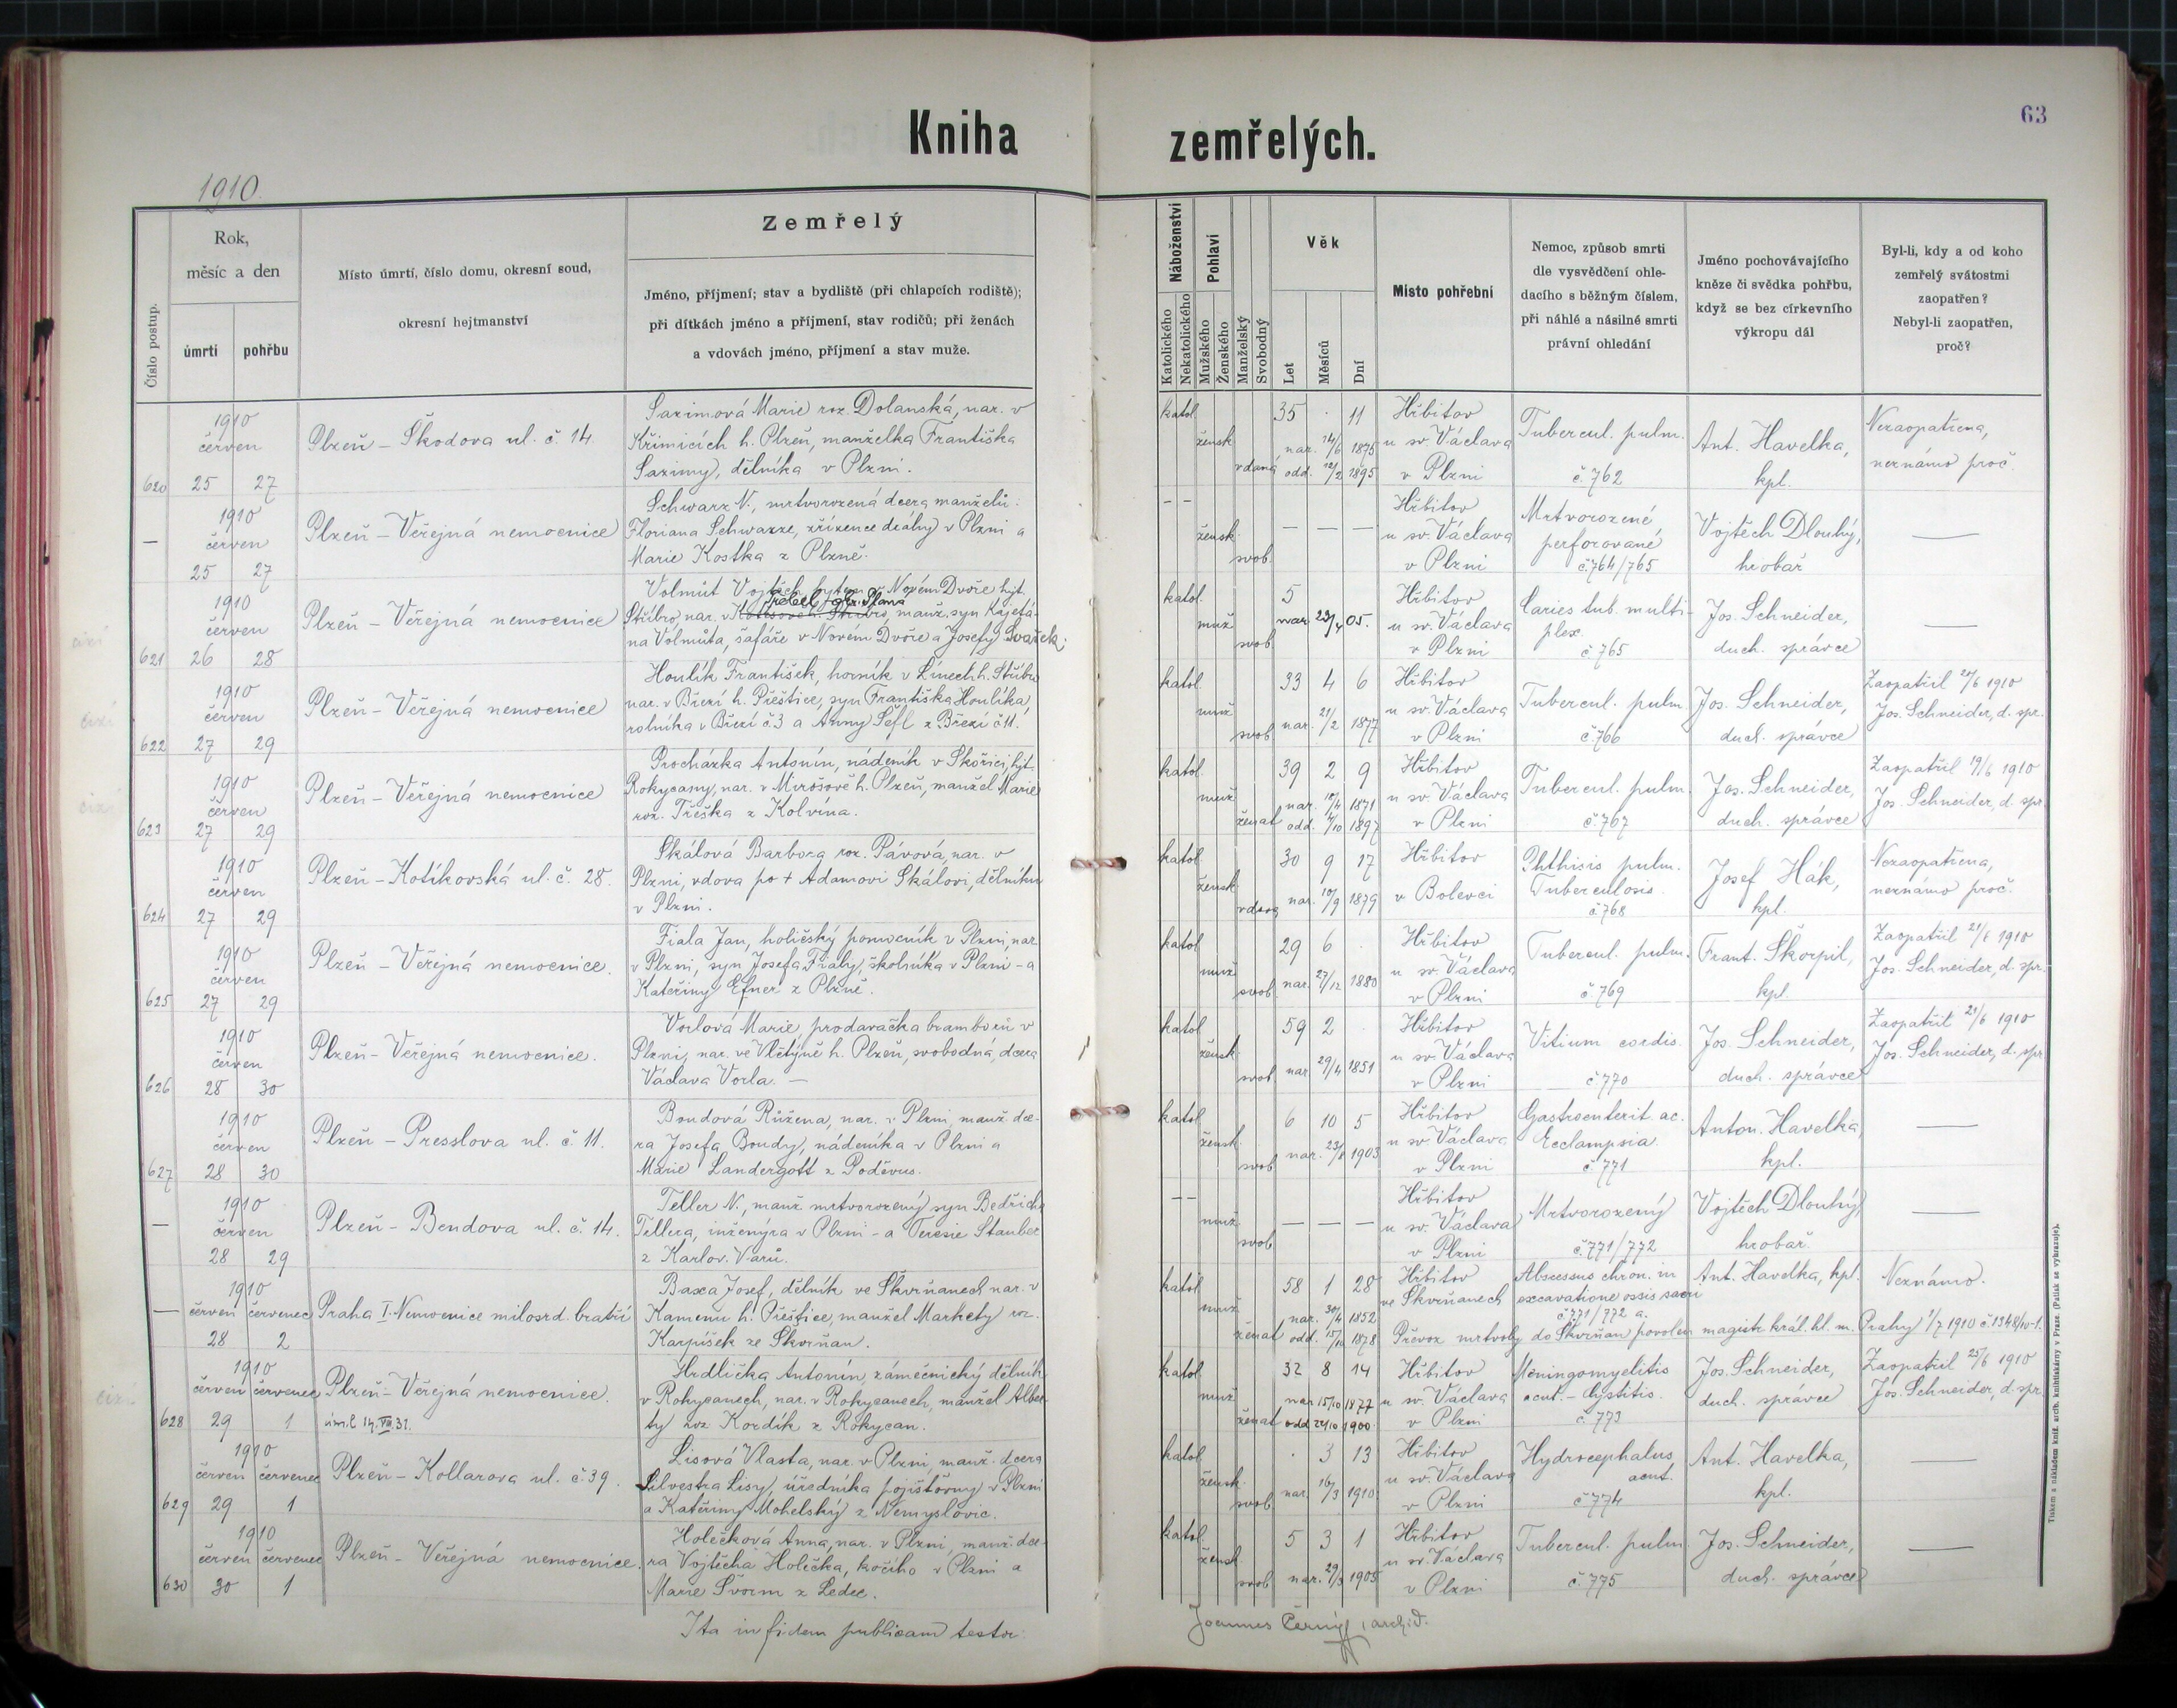 Kniha zemřelých.
63
1910.
Číslo postup.
Rok,
měsíc a den
úmrtí
pohřbu
Místo úmrtí, číslo domu, okresní soud,
okresní hejtmanství
Zemřelý
Jméno, příjmení; stav a bydliště (při chlapcích rodiště);
při dítkách jméno a příjmení, stav rodičů; při ženách
a vdovách jméno, příjmení a stav muže.
Náboženství
Katolického
Nekatolického
Pohlaví
Mužského
Ženského
Manželský
Svobodný
Věk
Let
Měsíců
Dní
Místo pohřební
Nemoc, způsob smrti
dle vysvědčení ohle-
dacího s běžným číslem,
při náhlé a násilné smrti
právní ohledání
Jméno pochovávajícího
kněze či svědka pohřbu,
když se bez církevního
výkropu dál
Byl-li, kdy a od koho
zemřelý svátostmi
zaopatřen?
Nebyl-li zaopatřen,
proč?
620
1910
červen
25 27
Plzeň - Škodova ul. č. 14.
Saximová Marie roz. Dolanská, nar. v
Křimicích h. Plzeň, manželka Františka
Saximy, dělníka v Plzni.
katol. žensk. vdaná
35 · 11
nar. 14/6 1875
odd. 12/2 1895
Hřbitov
u sv. Václava
v Plzni
Tubercul. pulm.
č. 762
Ant. Havelka,
kpl.
Nezaopatřena,
neznámo proč.
—
1910
červen
25 27
Plzeň - Veřejná nemocnice
Schwarz N., mrtvorozená dcera manželů:
Floriana Schwarze, zřízence dráhy v Plzni a
Marie Kostka z Plzně.
- - žensk. svob.
— — —
Hřbitov
u sv. Václava
v Plzni
Mrtvorozené,
perforované
č. 764/765
Vojtěch Dlouhý,
hrobař
—
cizí
621
1910
červen
26 28
Plzeň - Veřejná nemocnice
Volmut Vojtěch, bytem v Novém Dvoře hjt.
Stříbro, nar. v manž. syn Kajetá-
na Volmuta, šafáře v Novém Dvoře a Josefy Svašek.
katol. muž. svob.
5
nar. 23/4 05.
Hřbitov
u sv. Václava
v Plzni
Caries tub. multi-
plex.
č. 765
Jos. Schneider,
duch. správce
—
cizí
622
1910
červen
27 29
Plzeň - Veřejná nemocnice
Houlík František, horník v Línech h. Stříbro
nar. v Březí h. Přeštice, syn Františka Houlíka,
rolníka v Březí č. 3 a Anny Šefl z Březí č. 11.
katol. muž. svob.
33 4 6
nar. 21/2 1877
Hřbitov
u sv. Václava
v Plzni
Tubercul. pulm.
č. 766
Jos. Schneider,
duch. správce
Zaopatřil 24/6 1910
Jos. Schneider, d. spr.
cizí
623
1910
červen
27 29
Plzeň - Veřejná nemocnice
Procházka Antonín, nádeník v Skořici, hjt.
Rokycany, nar. v Mirošově h. Plzeň, manžel Marie
roz. Třeška z Kolvína.
katol. muž. ženat
39 2 9
nar. 1871
odd. 1897
Hřbitov
u sv. Václava
v Plzni
Tubercul. pulm.
č. 767
Jos. Schneider,
duch. správce
Zaopatřil 19/6 1910
Jos. Schneider, d. spr.
624
1910
červen
27 29
Plzeň - Kotíkovská ul. č. 28.
Skálová Barbora roz. Pávová, nar. v
Plzni, vdova po + Adamovi Skálovi, dělníku
v Plzni.
katol. žensk. vdova
30 9 17
nar. 10/9 1879
Hřbitov
v Bolevci
Phthisis pulm.
Tuberculosis.
č. 768
Josef Hák,
kpl.
Nezaopatřena,
neznámo proč.
625
1910
červen
27 29
Plzeň - Veřejná nemocnice.
Fiala Jan, holičský pomocník v Plzni, nar.
v Plzni, syn Josefa Fialy, školníka v Plzni - a
Kateřiny Efner z Plzně.
katol. muž. svob.
29 6 ·
nar. 27/12 1880
Hřbitov
u sv. Václava
v Plzni
Tubercul. pulm.
č. 769
Frant. Škorpil,
kpl.
Zaopatřil 21/6 1910
Jos. Schneider, d. spr.
626
1910
červen
28 30
Plzeň - Veřejná nemocnice.
Vorlová Marie, prodavačka bramborů v
Plzni, nar. ve Vlčtýně h. Plzeň, svobodná, dcera
Václava Vorla. —
katol. žensk. svob.
59 2 ·
nar. 29/4 1851
Hřbitov
u sv. Václava
v Plzni
Vitium cordis.
č. 770
Jos. Schneider,
duch. správce
Zaopatřil 21/6 1910
Jos. Schneider, d. spr.
627
1910
červen
28 30
Plzeň - Presslova ul. č. 11.
Boudová Růžena, nar. v Plzni, manž. dce-
ra Josefa Boudy, nádeníka v Plzni a
Marie Landergott z Poděvus.
katol. žensk. svob.
6 10 5
nar. 23/8 1903
Hřbitov
u sv. Václava
v Plzni
Gastroenterit. ac.
Ecclampsia.
č. 771
Anton. Havelka,
kpl.
—
—
1910
červen
28 29
Plzeň - Bendova ul. č. 14.
Teller N., manž. mrtvorozený syn Bedřicha
Tellera, inženýra v Plzni - a Teresie Stauber
z Karlov. Varů.
- - muž. svob.
— — —
Hřbitov
u sv. Václava
v Plzni
Mrtvorozený
č. 771/772
Vojtěch Dlouhý,
hrobař.
—
—
1910
červen červenec
28 2
Praha I. Nemocnice milosrd. bratří
Baxa Josef, dělník ve Skvrňanech nar. v
Kamenu h. Přeštice, manžel Markety roz.
Karpíšek ze Skvrňan.
katol. muž. ženat
58 1 28
nar. 30/4 1852
odd. 1878
Hřbitov
ve Skvrňanech
Abscessus chron. in
excavatione ossis sacri
č. 771/772 a.
Ant. Havelka, kpl.
Neznámo.
Převoz mrtvoly do Skvrňan povolen magistr. král. hl. m. Prahy 1/7 1910 č. 1348/10-1.
cizí
628
1910
červen červenec
29 1
Plzeň - Veřejná nemocnice.
Hrdlička Antonín, zámečnický dělník
v Rokycanech, nar. v Rokycanech, manžel Alber-
ty roz. Kordík z Rokycan.
katol. muž. ženat
32 8 14
nar. 15/10 1877
odd. 22/10 1900.
Hřbitov
u sv. Václava
v Plzni
Meningomyelitis
acut. - Cystitis.
č. 773
Jos. Schneider,
duch. správce
Zaopatřil 25/6 1910
Jos. Schneider, d. spr.
629
1910
červen červenec
29 1
Plzeň - Kollarova ul. č. 39.
Lisová Vlasta, nar. v Plzni, manž. dcera
Silvestra Lisy, úředníka pojišťovny v Plzni
a Kateřiny Mohelský z Nemyslovic.
katol. žensk. svob.
· 3 13
nar. 16/3 1910
Hřbitov
u sv. Václava
v Plzni
Hydrocephalus
acut.
č. 774
Ant. Havelka,
kpl.
—
630
1910
červen červenec
30 1
Plzeň - Veřejná nemocnice.
Holečková Anna, nar. v Plzni, manž. dce-
ra Vojtěcha Holečka, kočího v Plzni a
Marie Švorm z Ledec.
katol. žensk. svob.
5 3 1
nar. 29/3 1905
Hřbitov
u sv. Václava
v Plzni
Tubercul. pulm.
č. 775
Jos. Schneider,
duch. správce
—
Ita in fidem publicam testor
Joannes Černý, archid.
Tiskem a nákladem kníž. arcib. knihtiskárny v Praze. (Patisk se vyhrazuje).